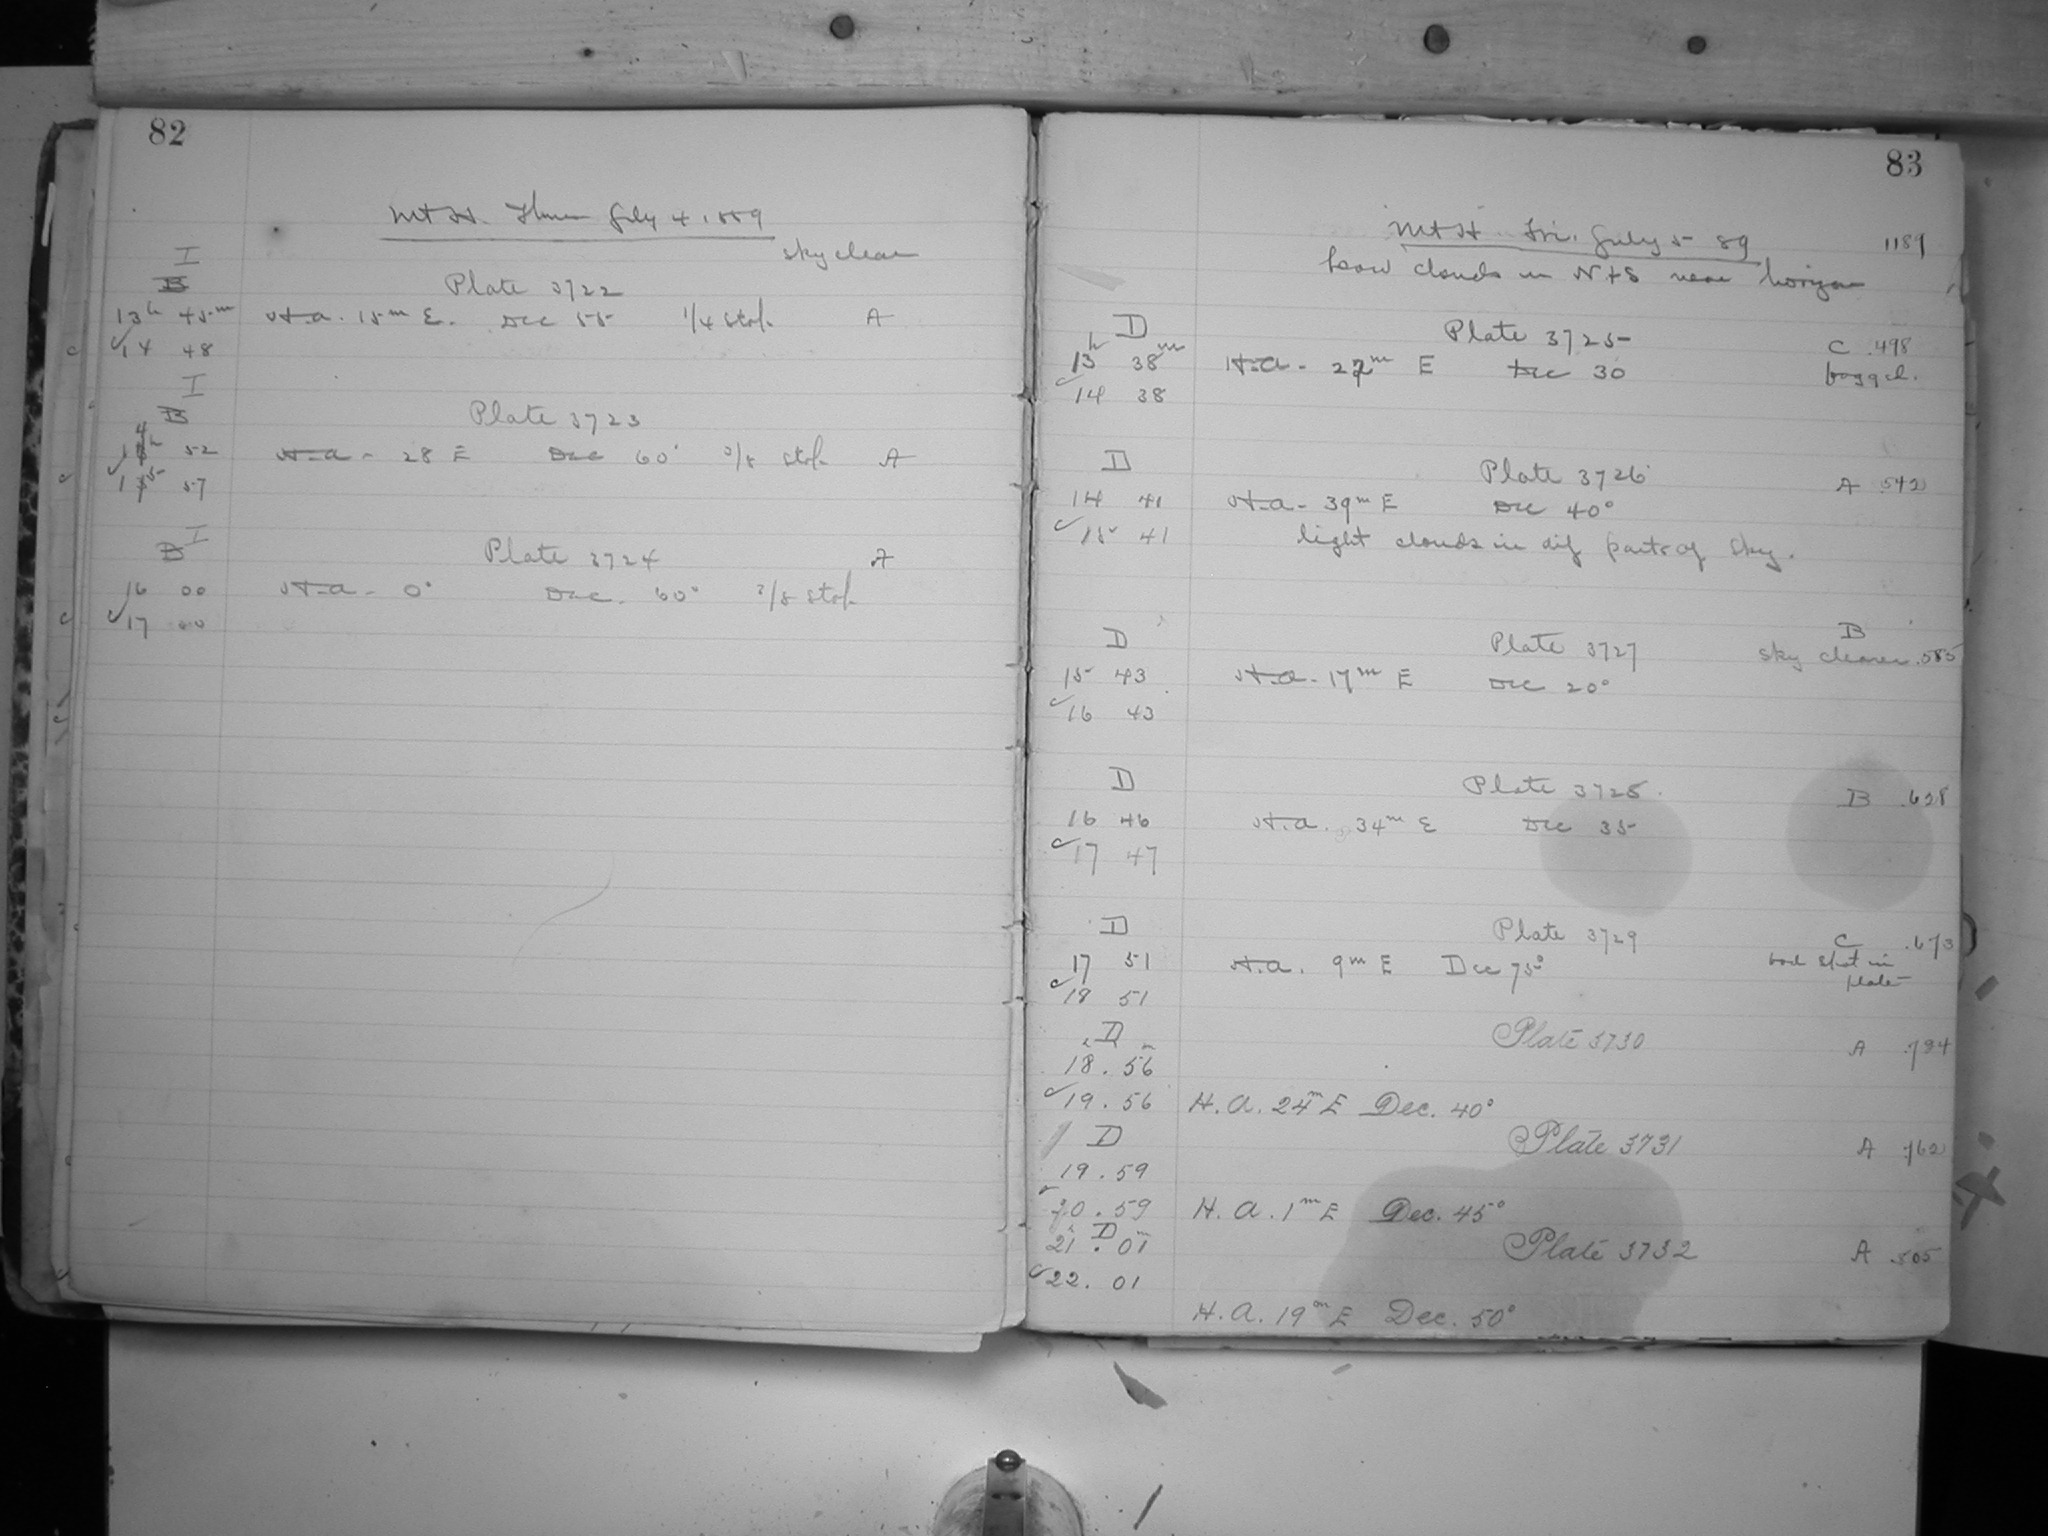 82
Mt H. Thur July 4. 1889
sky clear
I
B
Plate 3722
13h 45m H.a. 15m E. Dec 55 1/4 stop A
14 48
I
B
Plate 3723
14h 52 H.a. 28 E Dec 60° 3/8 stop A
15 57
I
B
Plate 3724 A
16 00 H.a. 0° Dec. 60° 3/8 stop
17 00
83
Mt H. Fri. July 5 89 1189
Low clouds in N & S near horizon
D Plate 3725 C .498
13h 38m H.a. 27m E Dec 30 fogged.
14 38
D Plate 3726 A .542
14 41 H.a. 39m E Dec 40°
15 41 light clouds in dif parts of sky.
D Plate 3727 B
sky clearer .585
15 43 H.a. 17m E Dec 20°
16 43
D Plate 3728. B .628
16 46 H.a. 34m E Dec 35
17 47
D Plate 3729 C .673
17 51 H.a. 9m E Dec 75° bad spot in
18 51 plate
D Plate 3730 A
18h. 56m
19. 56 H.A. 24m E Dec. 40°
D Plate 3731 A .762
19. 59
20. 59 H.A. 1m E Dec. 45°
21h. D 01m Plate 3732 A
22. 01
H.A. 19m E Dec. 50°